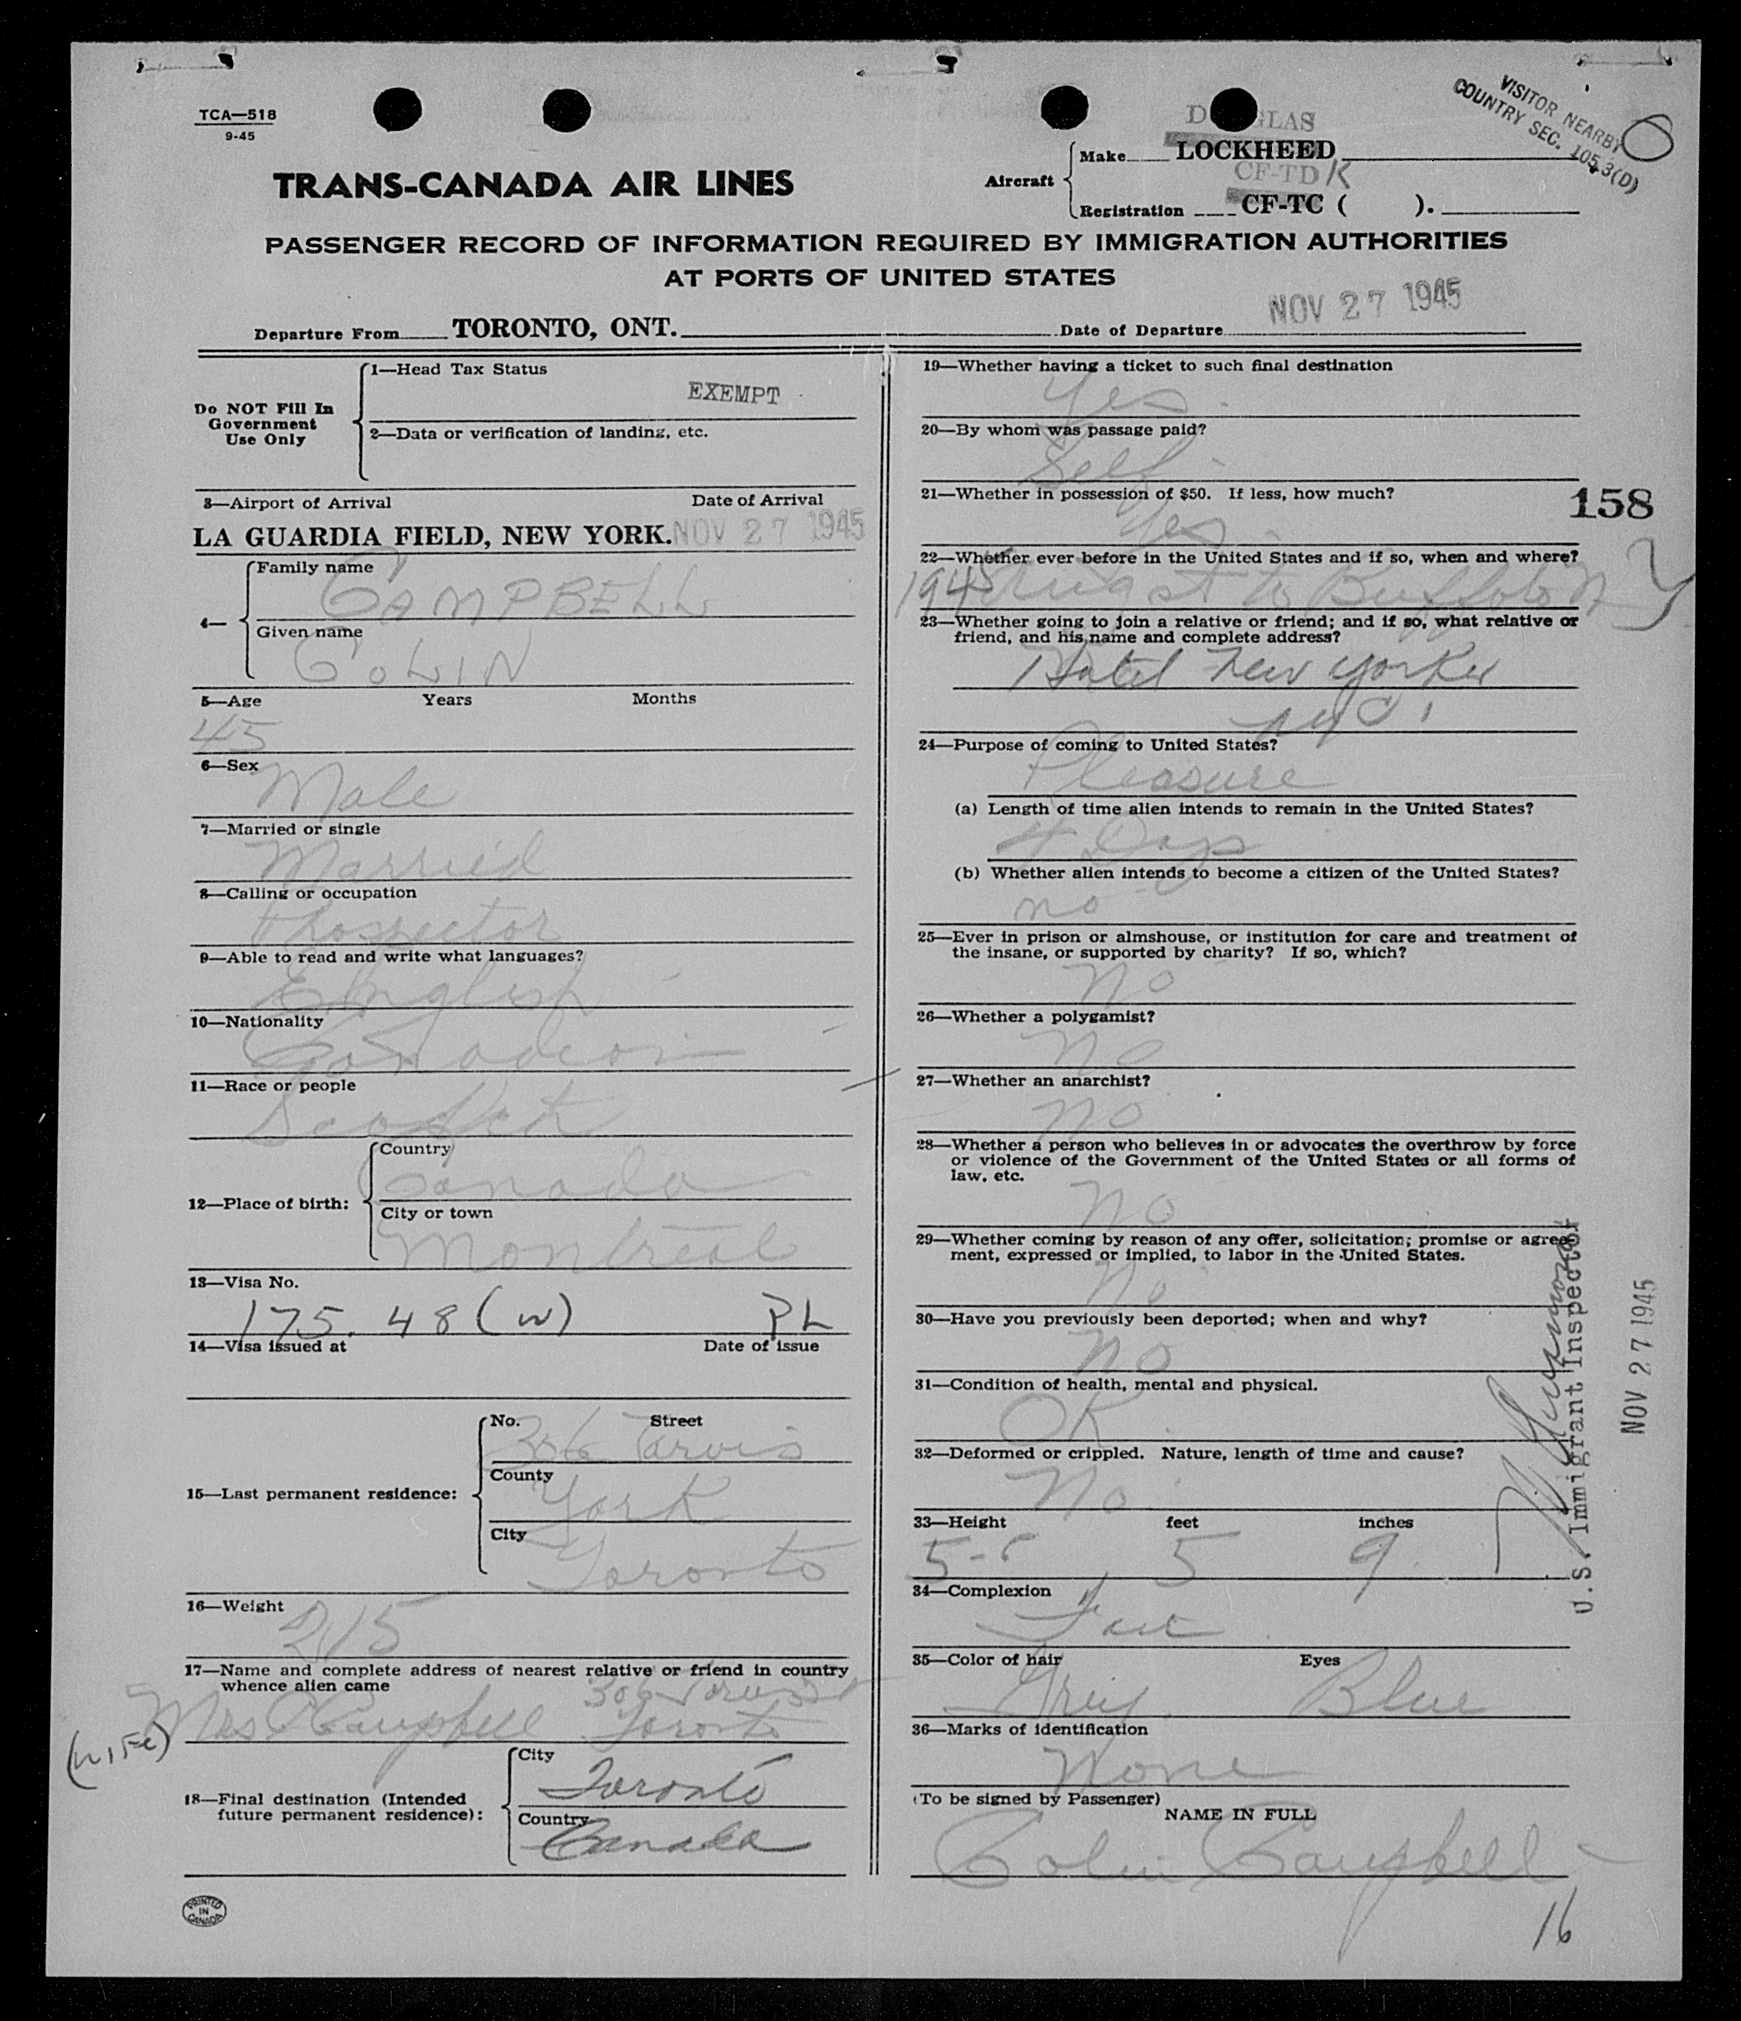 TCA—518
9-45
VISITOR NEARBY
COUNTRY SEC. 105.3(D)
DOUGLAS
Aircraft
Make LOCKHEED
CF-TDK
Registration CF-TC ( ).
TRANS-CANADA AIR LINES
PASSENGER RECORD OF INFORMATION REQUIRED BY IMMIGRATION AUTHORITIES
AT PORTS OF UNITED STATES
Departure From TORONTO, ONT. Date of Departure NOV 27 1945
Do NOT Fill In
Government
Use Only
1—Head Tax Status
EXEMPT
2—Data or verification of landing, etc.
3—Airport of Arrival Date of Arrival
LA GUARDIA FIELD, NEW YORK. NOV 27 1945
4—
Family name
CAMPBELL
Given name
COLIN
5—Age Years Months
45
6—Sex
Male
7—Married or single
Married
8—Calling or occupation
Prospector
9—Able to read and write what languages?
English
10—Nationality
Canadian
11—Race or people
Scotch
12—Place of birth:
Country
Canada
City or town
Montreal
13—Visa No.
175.48 (W) PL
14—Visa issued at Date of issue
15—Last permanent residence:
No. Street
306 Jarvis
County
York
City
Toronto
16—Weight
215
17—Name and complete address of nearest relative or friend in country
whence alien came
306 Jarvis St
Mrs C Campbell Toronto
(WIFE)
18—Final destination (Intended
future permanent residence):
City
Toronto
Country
Canada
PRINTED
IN
CANADA
19—Whether having a ticket to such final destination
Yes.
20—By whom was passage paid?
Self
21—Whether in possession of $50. If less, how much?
158
Yes
22—Whether ever before in the United States and if so, when and where?
1945 August to Buffalo N Y
23—Whether going to join a relative or friend; and if so, what relative or
friend, and his name and complete address?
Hotel New Yorker
NYC.
24—Purpose of coming to United States?
Pleasure
(a) Length of time alien intends to remain in the United States?
4 Days
(b) Whether alien intends to become a citizen of the United States?
no
25—Ever in prison or almshouse, or institution for care and treatment of
the insane, or supported by charity? If so, which?
No
26—Whether a polygamist?
No
27—Whether an anarchist?
No
28—Whether a person who believes in or advocates the overthrow by force
or violence of the Government of the United States or all forms of
law, etc.
No
29—Whether coming by reason of any offer, solicitation; promise or agree-
ment, expressed or implied, to labor in the United States.
No
30—Have you previously been deported; when and why?
No
31—Condition of health, mental and physical.
OK
32—Deformed or crippled. Nature, length of time and cause?
No
33—Height feet inches
5 9
34—Complexion
Fair
35—Color of hair Eyes
Grey Blue
36—Marks of identification
None
(To be signed by Passenger)
NAME IN FULL
Colin Campbell
16
U.S. Immigrant Inspector
NOV 27 1945